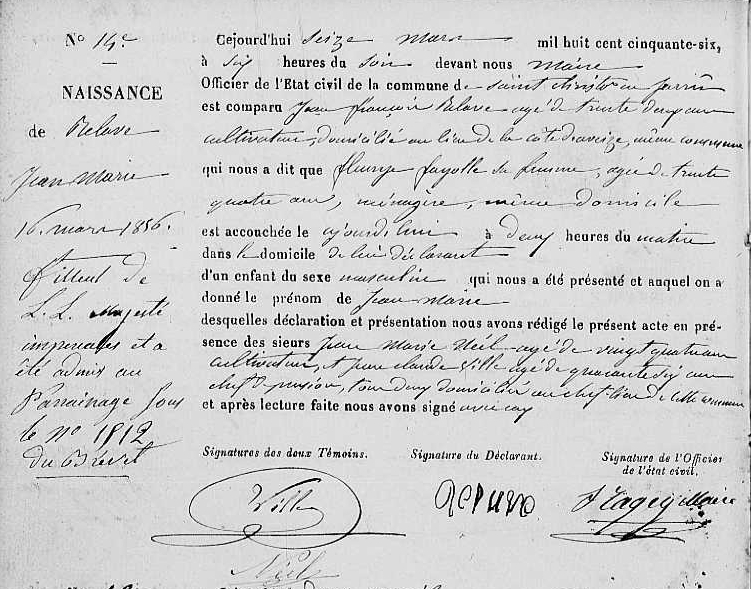 No 14e
NAISSANCE
de Relave
Jean Marie
16 mars 1856.
filleul de
L. L. Majesté
imperiales et a
été admis au
Parrainage sous
le No 1812
du Brevet
Cejourd'hui seize mars mil huit cent cinquante-six,
à six heures du soir devant nous Maire
Officier de l'Etat civil de la commune de saint christo en jarrêt
est comparu Jean françois Relave agé de trente deux ans
cultivateur, domicilié au lieu de la côte d'aveize, même commune
qui nous a dit que fleurye fayolle sa femme, agée de trente
quatre ans, ménagère, même domicile
est accouchée le ajourd'hui à deux heures du matin
dans le domicile de lui déclarant
d'un enfant du sexe masculin qui nous a été présenté et auquel on a
donné le prénom de Jean-marie
desquelles déclaration et présentation nous avons rédigé le présent acte en pré-
sence des sieurs Jean Marie Néel agé de vingt quatre ans
cultivateur, et jean claude Ville agé de quarante six ans
chef de pension, tous deux domiciliés au chef lieu de cette commune
et après lecture faite nous avons signé avec eux
Signatures des deux Témoins. Signature du Déclarant. Signature de l'Officier
de l'état civil.
Ville Relave Maire
Néel